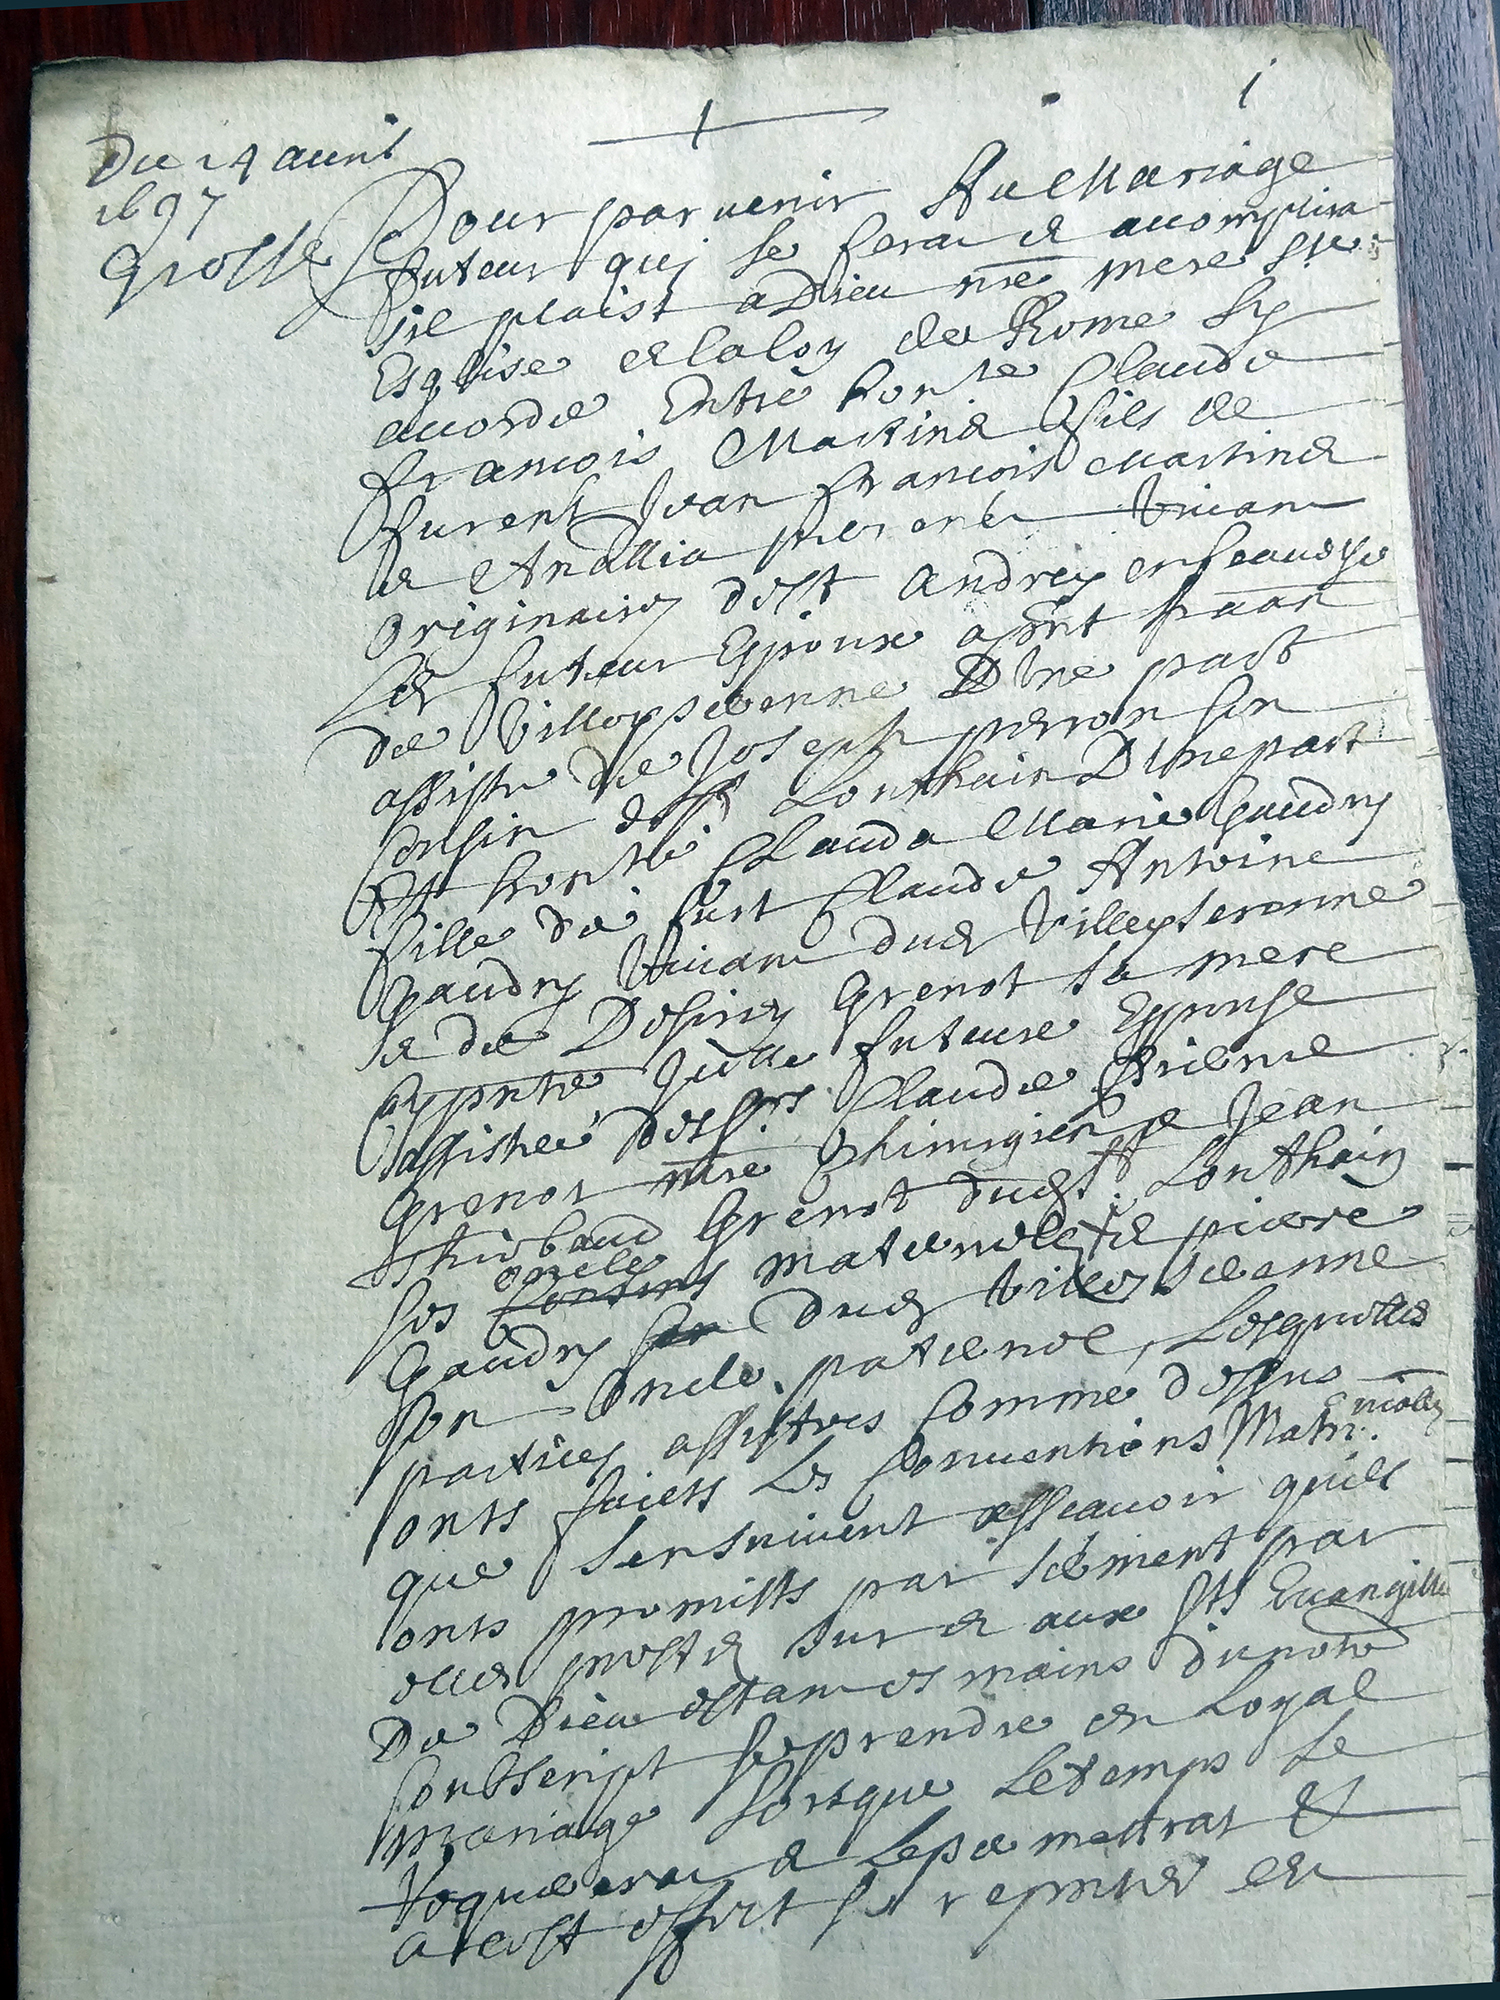 1
Du 24 auril
1697
grosse
Pour paruenir Au Mariage
futeur quj se fera et acomplira
sil plaist a Dieu nre mere Ste
Esglise et la loy de Rome sy
acorde Entre honble Claude
francois Martinet fils de
furent Jean francois Martinet
et Anathlia viuam
Originaires de St Andrey en Sauoye
Led futeur Espoux
de Villeyseuenne D'Vne part
assiste de Joseph perron son
Cousin de St Lonthain D'Vne part
Et honble Clauda Marie Gaudry
fille de fust Claude Antoine
Gaudry viuam dud Villeyseuenne
et de Desirey Grenot sa mere
Cy pnte Jcelle futeure Espouse
assistee des Srs Claude Estienne
Grenot mre Chirurgien et Jean
Thiebaud Grenot dud St Lonthain
ses oncles maternels et pierre
Gaudry dud Villeyseuenne
son oncle paternel, Lesquelles
parties assistees Comme dessus
onts faicts Les Conuentions Matrimonialles
que sensuiuent assauoir quils
onts promists par serment par
eux prestez sur et aux Sts Euangilles
De Dieu estam es mains du notre
soubscript se prendre en Loyal
mariage Lorsque Le temps le
requerera et Lepermettrat &
a cest effect se